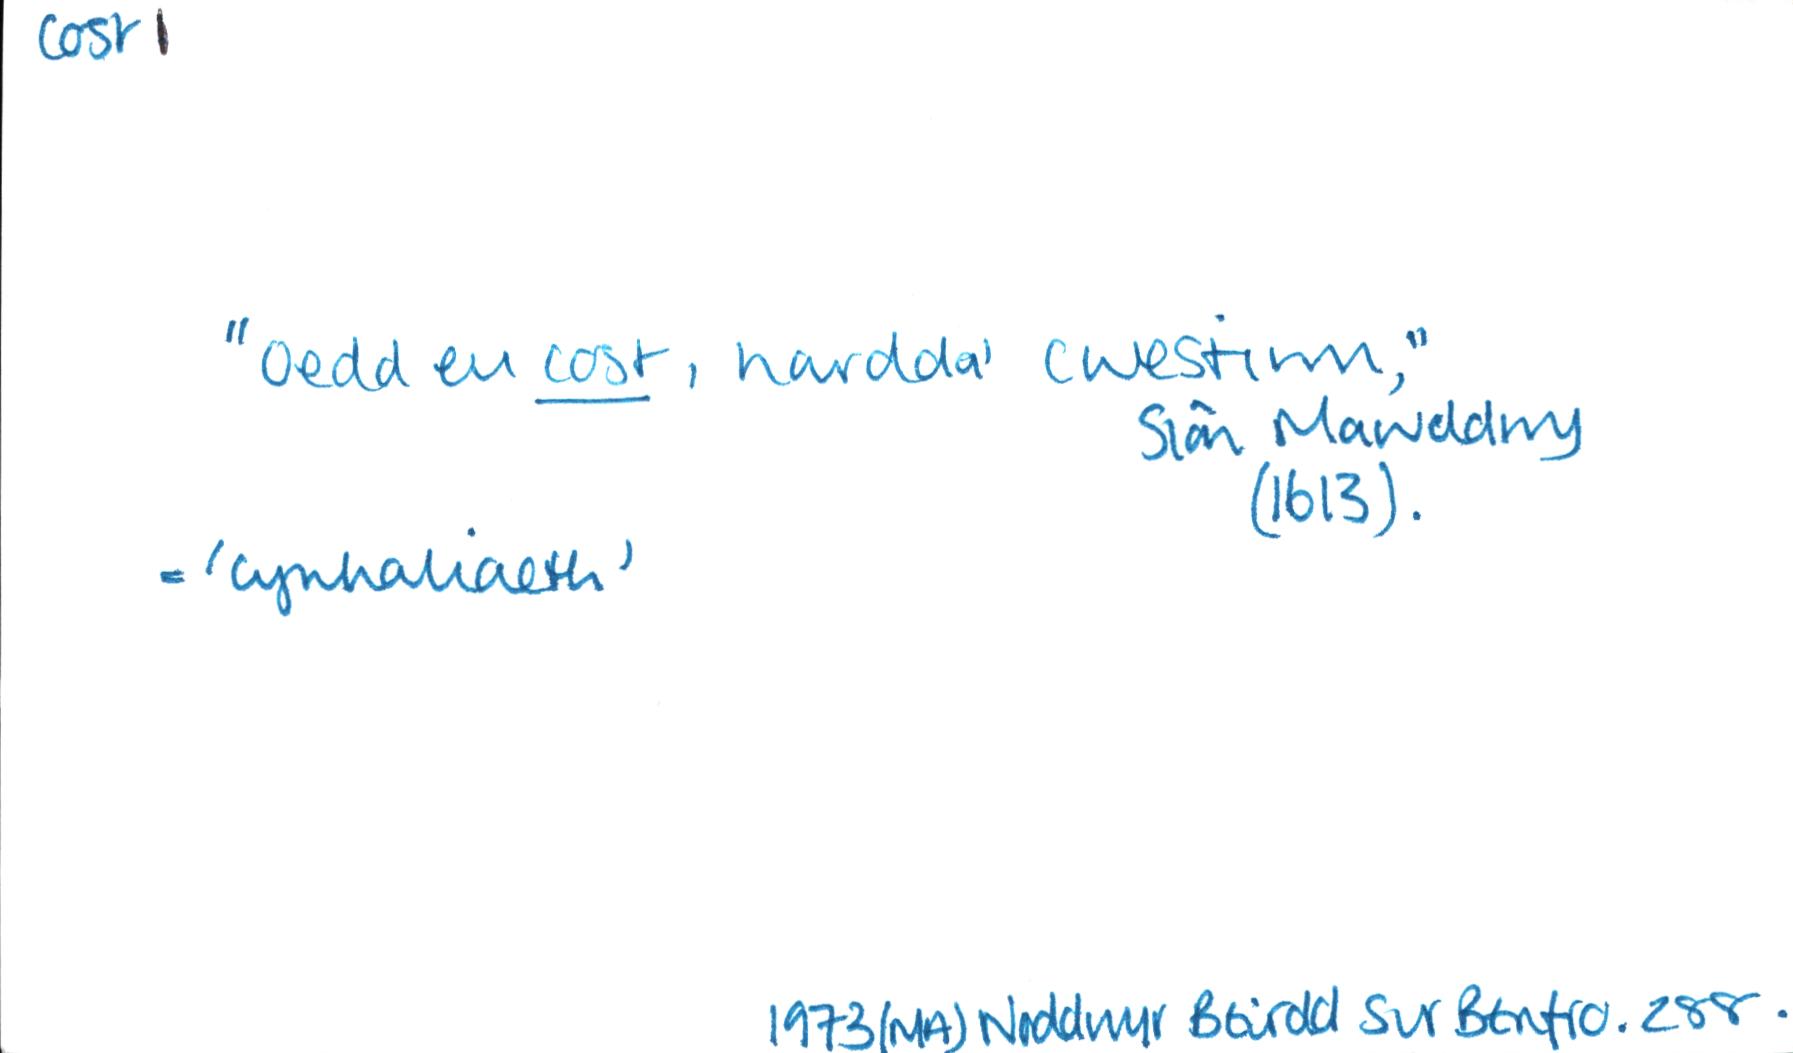 cost 1
"Oedd eu cost, hardda' cwestiwn,"
Siôn Mawddwy
(1613).
= 'cynhaliaeth'
1973 (MA) Noddwyr Beirdd Sir Benfro. 288.